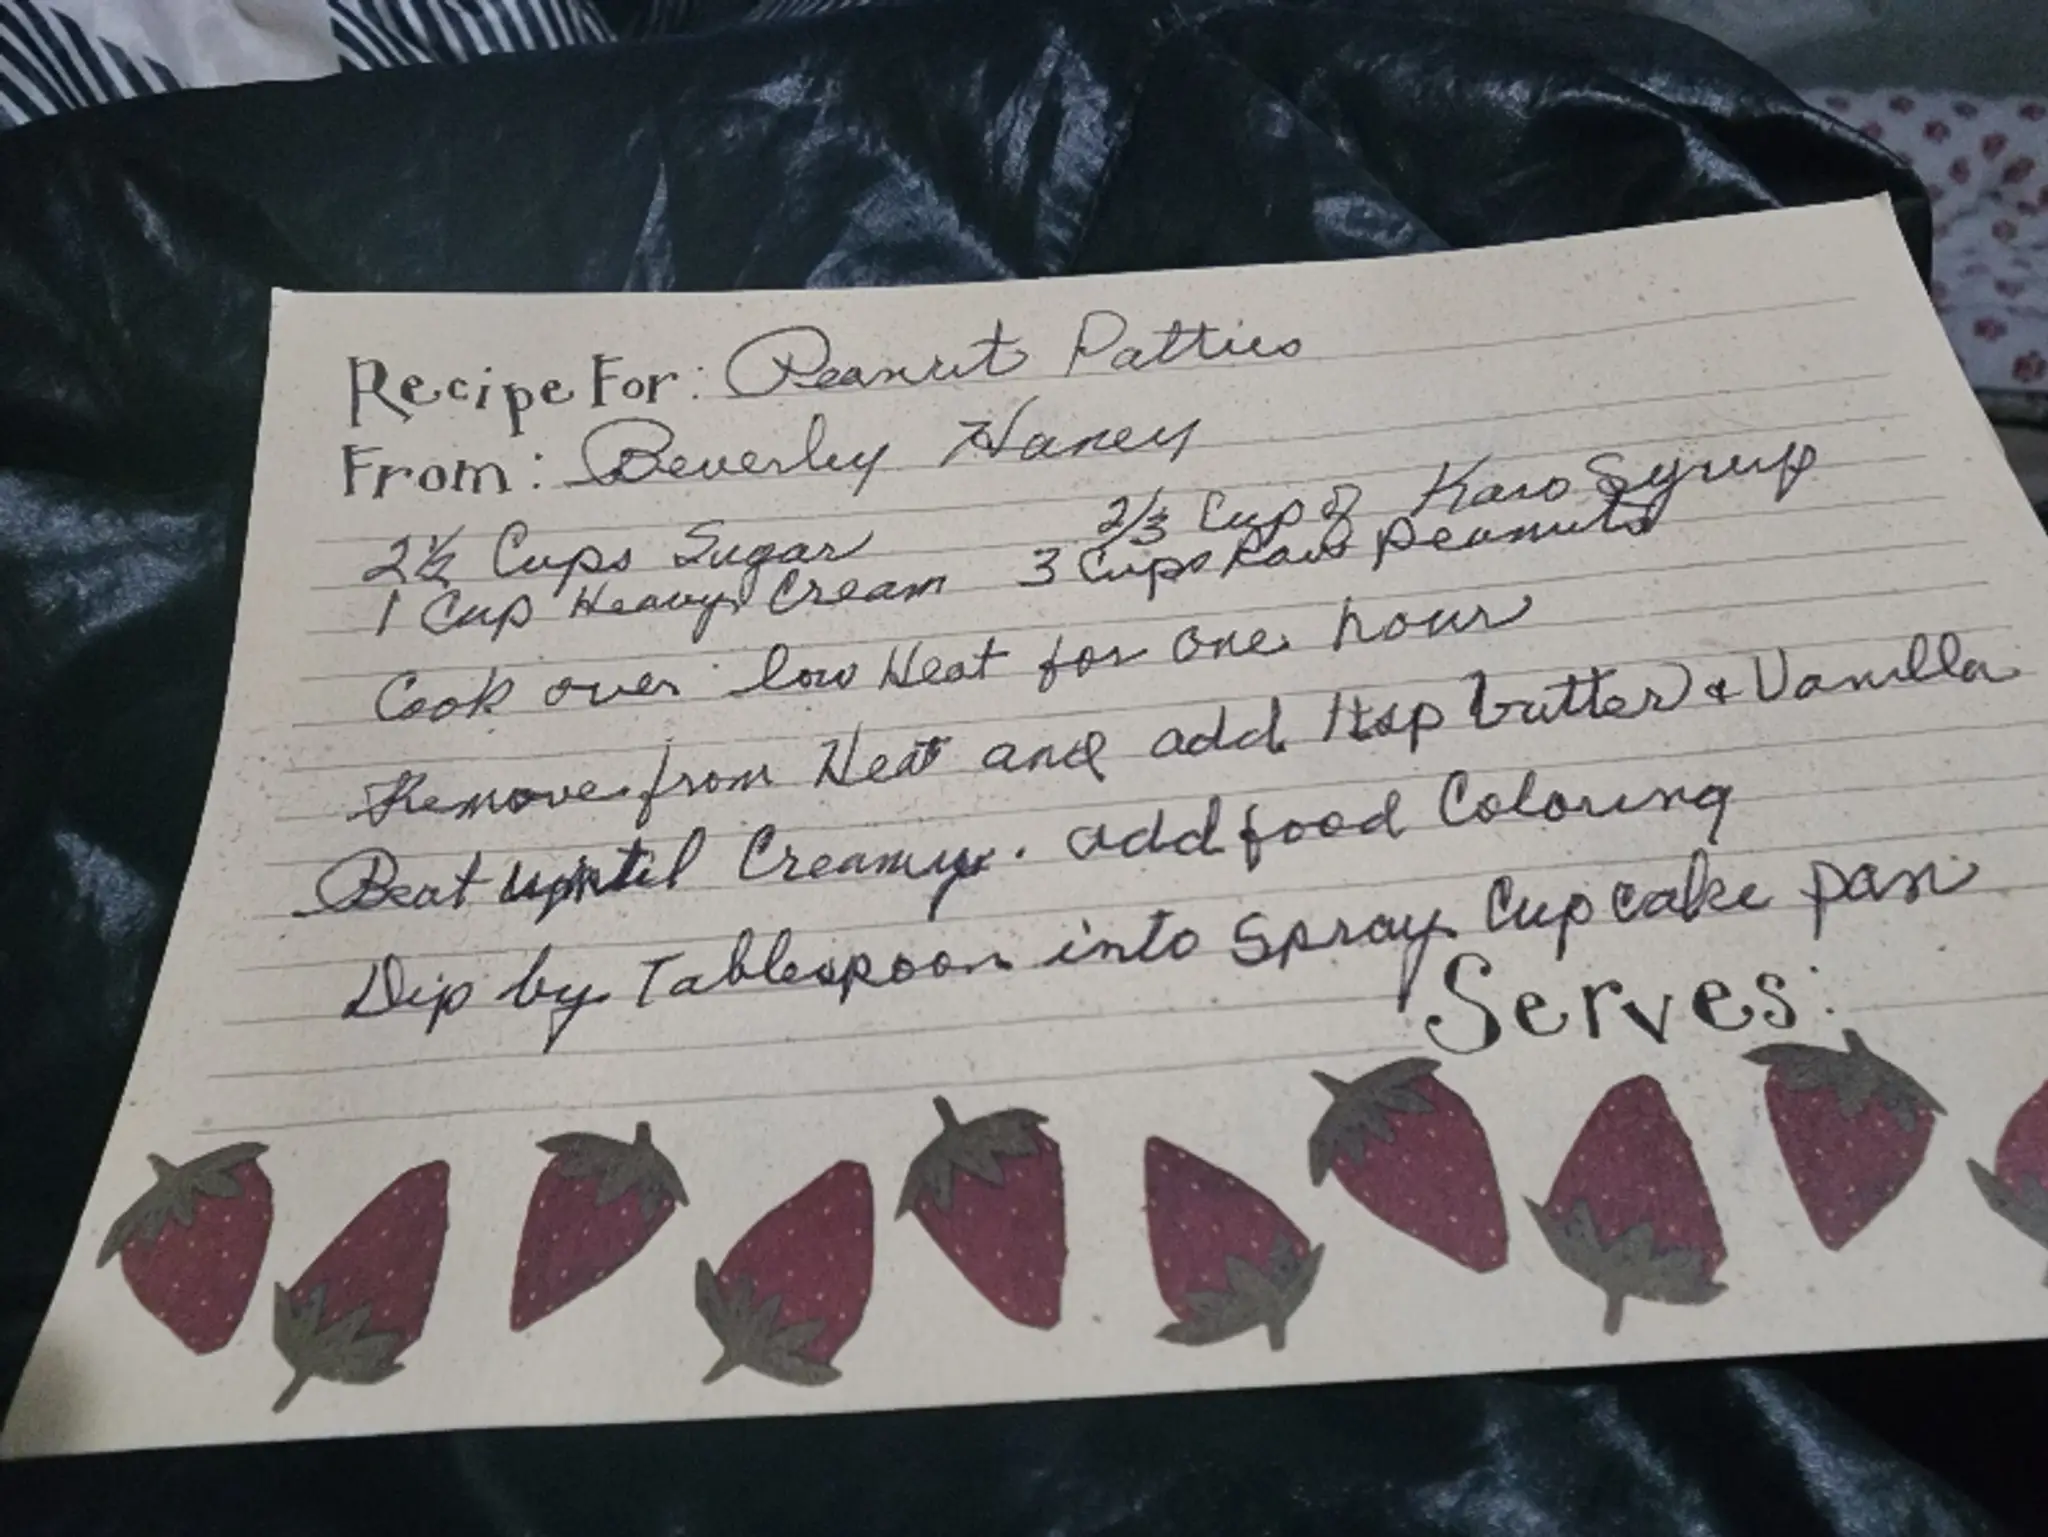 Recipe For: Peanut Patties
From: Beverley Haney
2½ Cups Sugar 2/3 Cup of Karo Syrup
1 Cup Heavy Cream 3 Cups Raw Peanuts
Cook over low Heat for one hour
Remove from Heat and add 1 tsp butter & Vanilla
Beat until Creamy. add food Coloring
Dip by Tablespoon into Spray Cup cake pan
Serves: